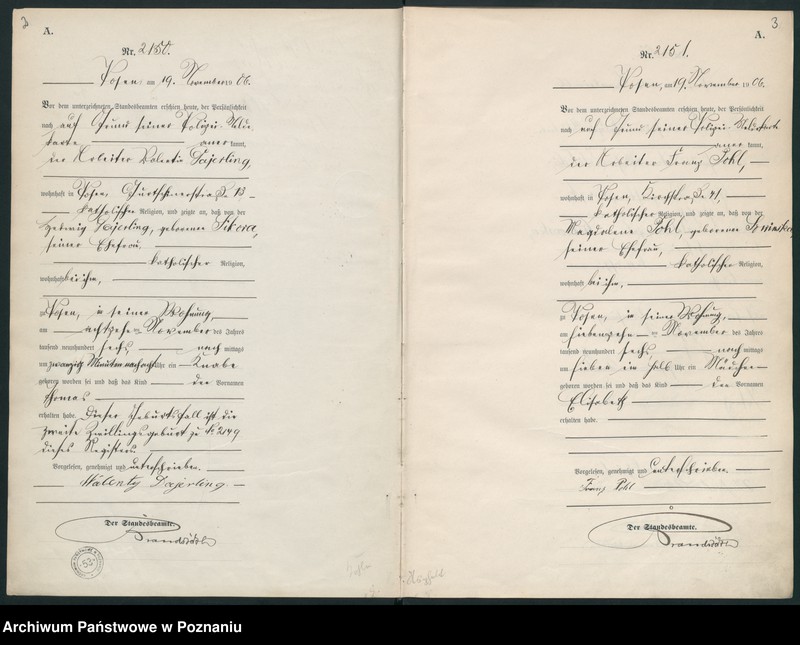 2
A.
Nr. 2150.
Posen, am 19. November 1906.
Vor dem unterzeichneten Standesbeamten erschien heute, der Persönlichkeit
nach auf Grund seiner Polizei-Melde-
karte anerkannt,
der Arbeiter Valentin
wohnhaft in Posen, 13
katholischer Religion, und zeigte an, daß von der
Hedwig geborenen Sikora,
seiner Ehefrau,
katholischer Religion,
wohnhaft bei ihm,
zu Posen, in seiner Wohnung,
am achtzehn ten November des Jahres
tausend neunhundert sechs nach mittags
um zwanzig Minuten nach acht Uhr ein Knabe
geboren worden sei und daß das Kind den Vornamen
Thomas
erhalten habe. Dieser Geburtsfall ist die
zweite Zwillingsgeburt zu Nr. 2149
dieses Registers.
Vorgelesen, genehmigt und unterschrieben.
Walenty
Der Standesbeamte.
53
3
A.
Nr. 2151.
Posen, am 19. November 1906.
Vor dem unterzeichneten Standesbeamten erschien heute, der Persönlichkeit
nach auf Grund seiner Polizei-Meldekarte
anerkannt,
der Arbeiter Franz Pohl,
wohnhaft in Posen, 41,
katholischer Religion, und zeigte an, daß von der
Magdalene Pohl, geborenen
seiner Ehefrau,
katholischer Religion,
wohnhaft bei ihm,
zu Posen, in seiner Wohnung,
am siebenzehn ten November des Jahres
tausend neunhundert sechs nach mittags
um sieben ein halb Uhr ein Mädchen
geboren worden sei und daß das Kind den Vornamen
Elisabeth
erhalten habe.
Vorgelesen, genehmigt und unterschrieben.
Franz Pohl
Der Standesbeamte.
Archiwum Państwowe w Poznaniu